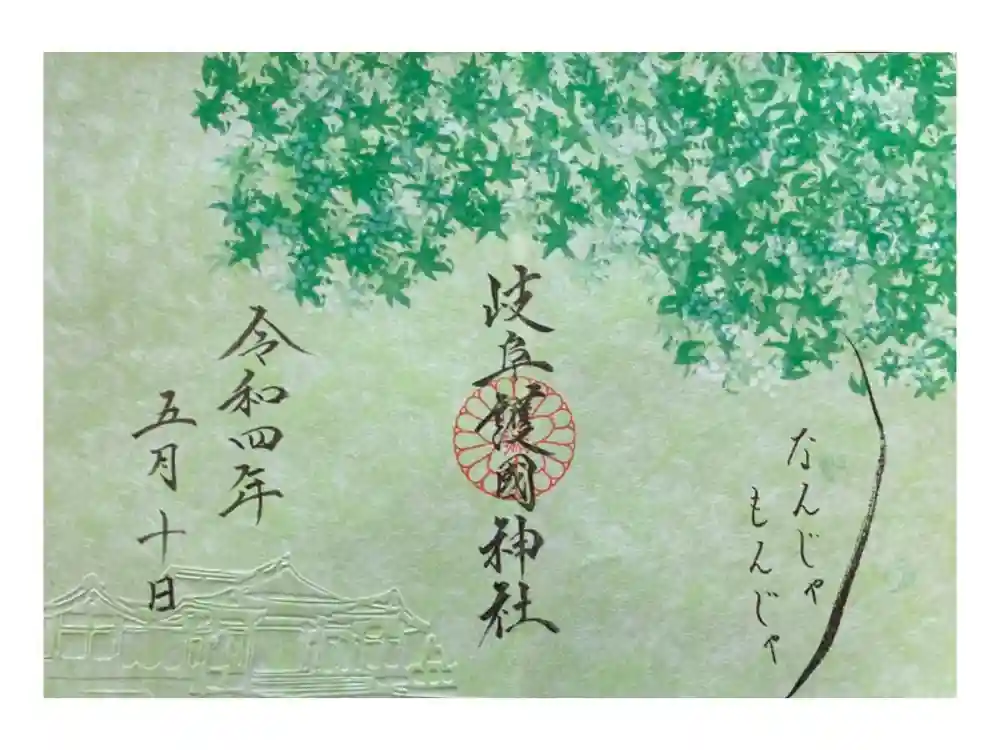 なんじゃ
もんじゃ
岐阜護國神社
令和四年
五月十日